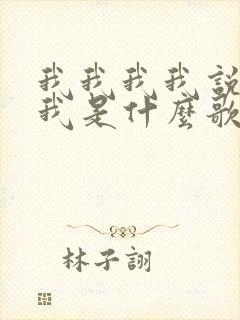 我我我我說
我是什麼歌
林子詡